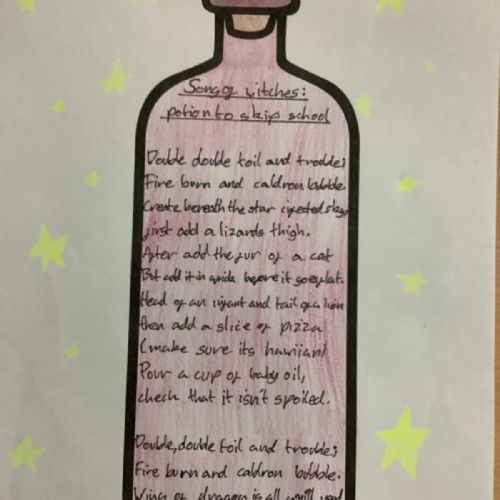 Song of witches:
potion to skip school
Double double toil and trouble;
Fire burn and caldron bubble.
Create beneath the star injected sky,
first add a lizards thigh.
After add the fur of a cat
But add it in quick before it goes flat.
Head of an and tail of a lion
then add a slice of pizza
(make sure its hawiian)
Pour a cup of baby oil,
check that it isn't spoiled.
Double, double toil and trouble;
Fire burn and caldron bubble.
Wing of dragon is all you'll need